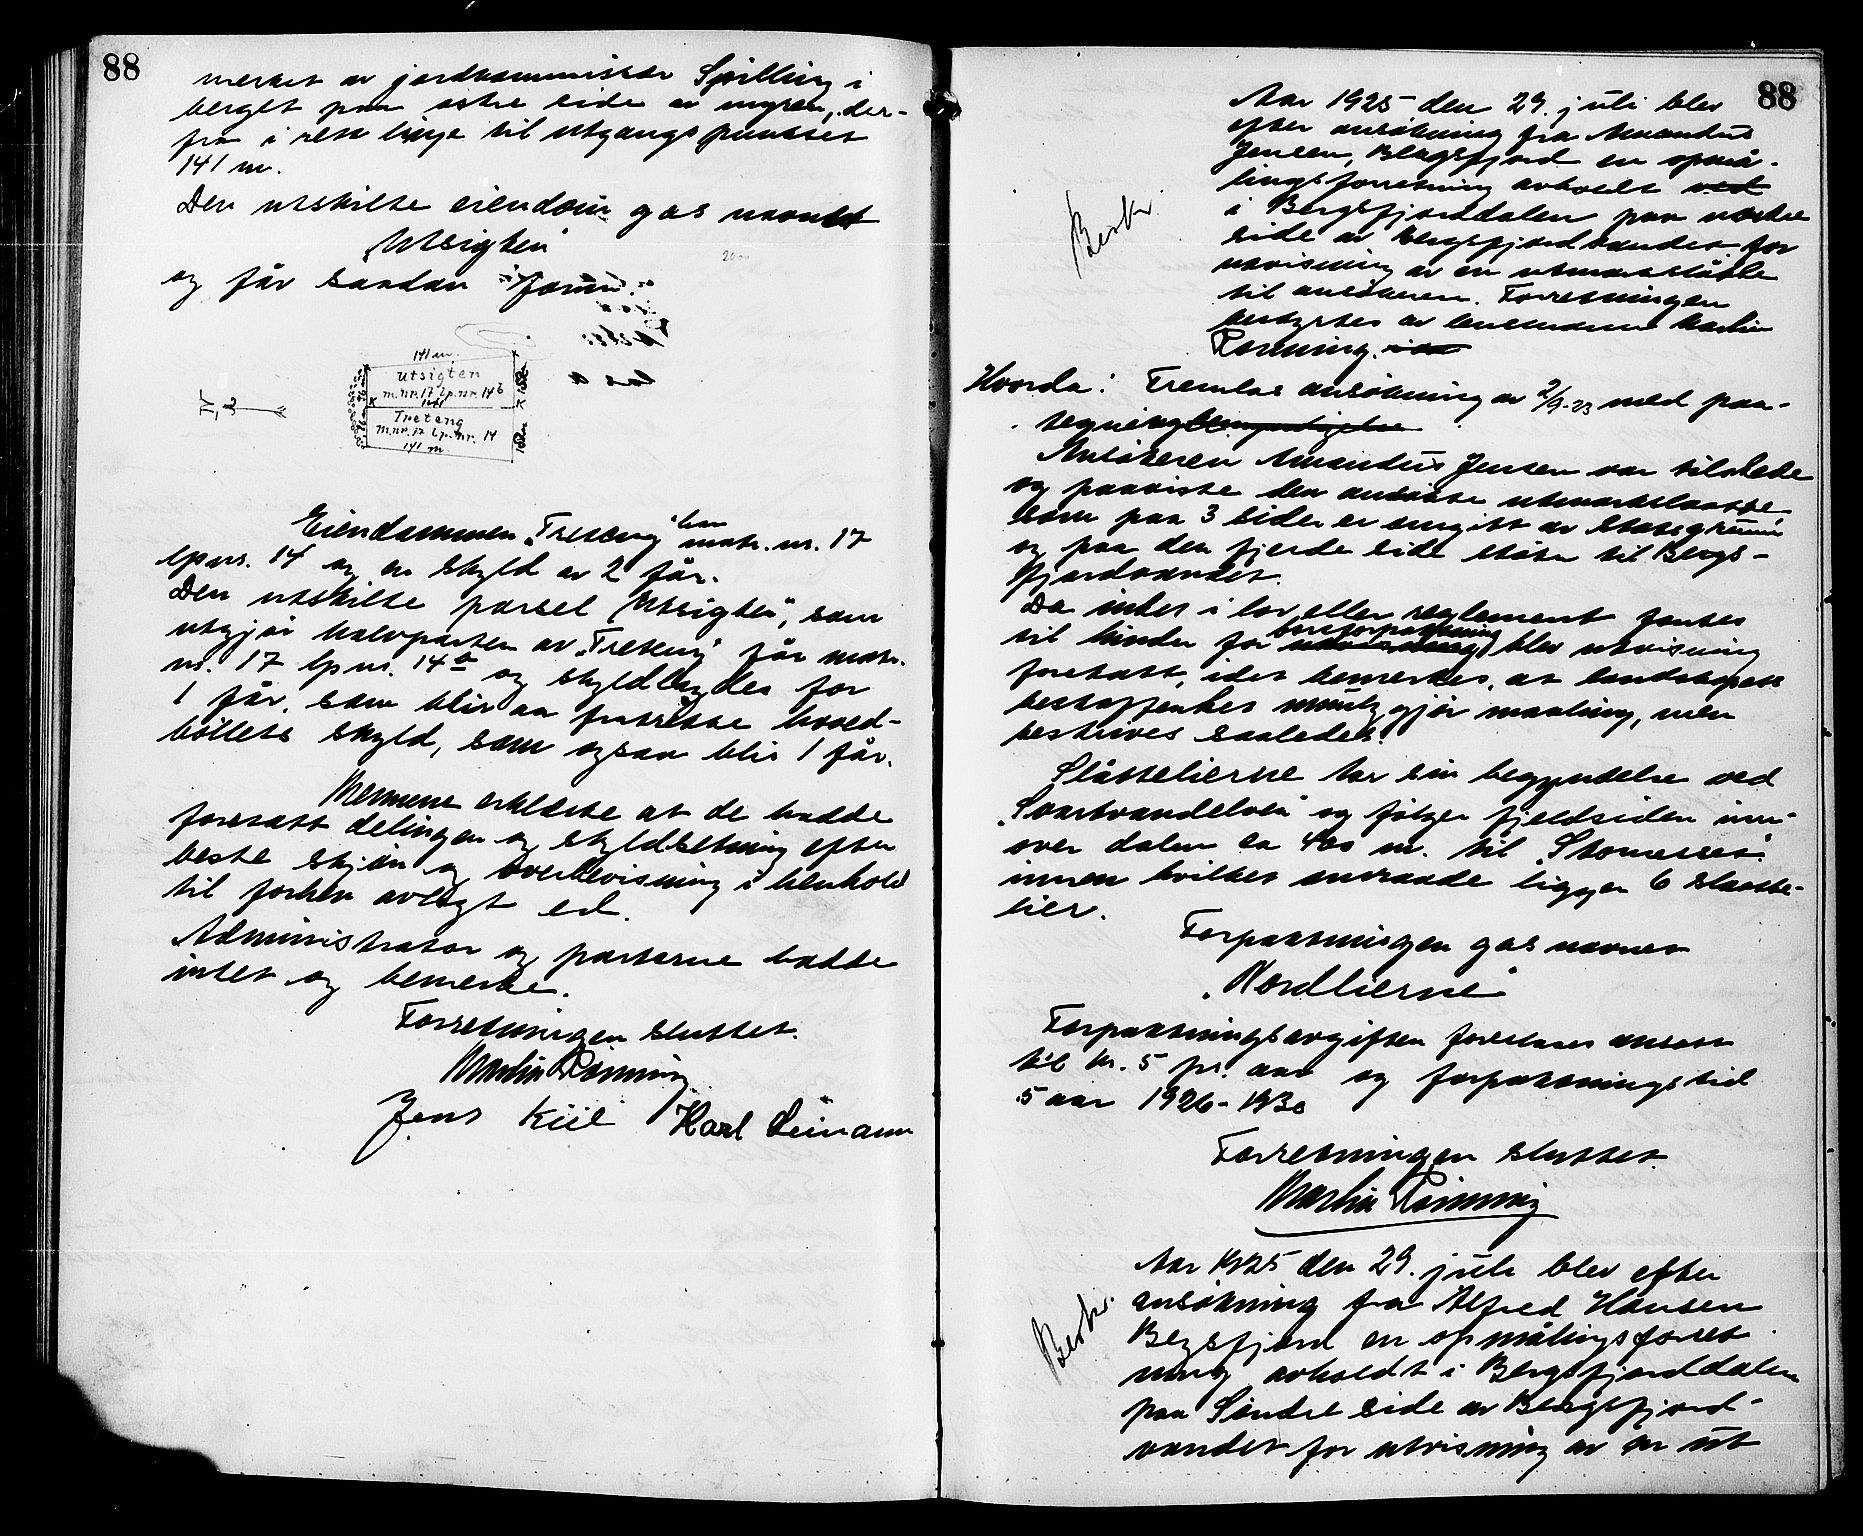 88
merket av jordkommissær Spilling i
berget paa östre side av myren, der-
fra i rett linje til utgangspunktet
141 m.
Den utskilte eiendom gas navnet
"Utsigten"
og får saadan form:
141 m.
Utsigten
m.nr. 17 lp.nr. 14b
141
Treteng
m.nr. 17 lp.nr. 14
141 m.
N
Eiendommen "Treteng" har matr. nr. 17
lpnr. 14 og en skyld av 2 får.
Den utskilte parsel "Utsigten", som
utgjör halvparten av "Treteng" får matr.
nr. 17 lpnr. 14b og skyldlegdes for
1 får, som blir aa fratrekke hoved-
böllets skyld, som ogsaa blir 1 får.
Mennene erklærte at de hadde
foretatt delingen og skyldsetning efter
beste skjön og overbevisning i henhold
til forhen avlagt ed.
Administrator og parterne hadde
intet og bemerke.
Forretningen sluttet.
Martin Rönning
Jens Kiil Karl Leinann
88
Aar 1925 den 29. juli blev
efter ansökning fra Amandus
Jensen, Bergsfjord en opmå-
lingsforretning avholdt ved
i Bergsfjorddalen paa nordre
side av Bergsfjordvandet for
utvisning av en utmarkslåtte
til ansökeren. Forretningen
bestyrtes av lensmann Martin
Rönning.
Hvorda: Fremlas ansökning av 2/9-23 med paa-
tegning
Ansökeren Amandus Jensen var tilstede
og paaviste den ansökte utmarkslaatte
som paa 3 sider er omgitt av statsgrunn
og paa den fjerde side stöter til Bergs-
fjordvandet.
Da intet i lov eller reglement fantes
til hinder for bortforpaktning utvisning, blev utvisning
foretatt, idet bemerkes, at landskapets
beskaffenhet umulig gjör maaling, men
beskrives saaledes:
Slåttelierne tar sin begyndelse ved
"Svartvandelven" og fölger fjeldsiden inn-
over dalen ca 400 m. til "Storneset"
innen hvilket omraade ligger 6 slaatte-
lier.
Forpaktningen gas navnet
"Nordlierne"
Forpaktningsavgiften foreslaaes ansatt
til kr. 5 pr. aar og forpaktningstid
5 aar 1926-1930
Forretningen sluttet.
Martin Rönning
Aar 1925 den 29. juli blev efter
ansökning fra Alfred Hansen
Bergsfjord en opmålingsforret
ning avholdt i Bergsfjorddalen
paa Söndre side av Bergsfjord-
vandet for utvisning av en ut